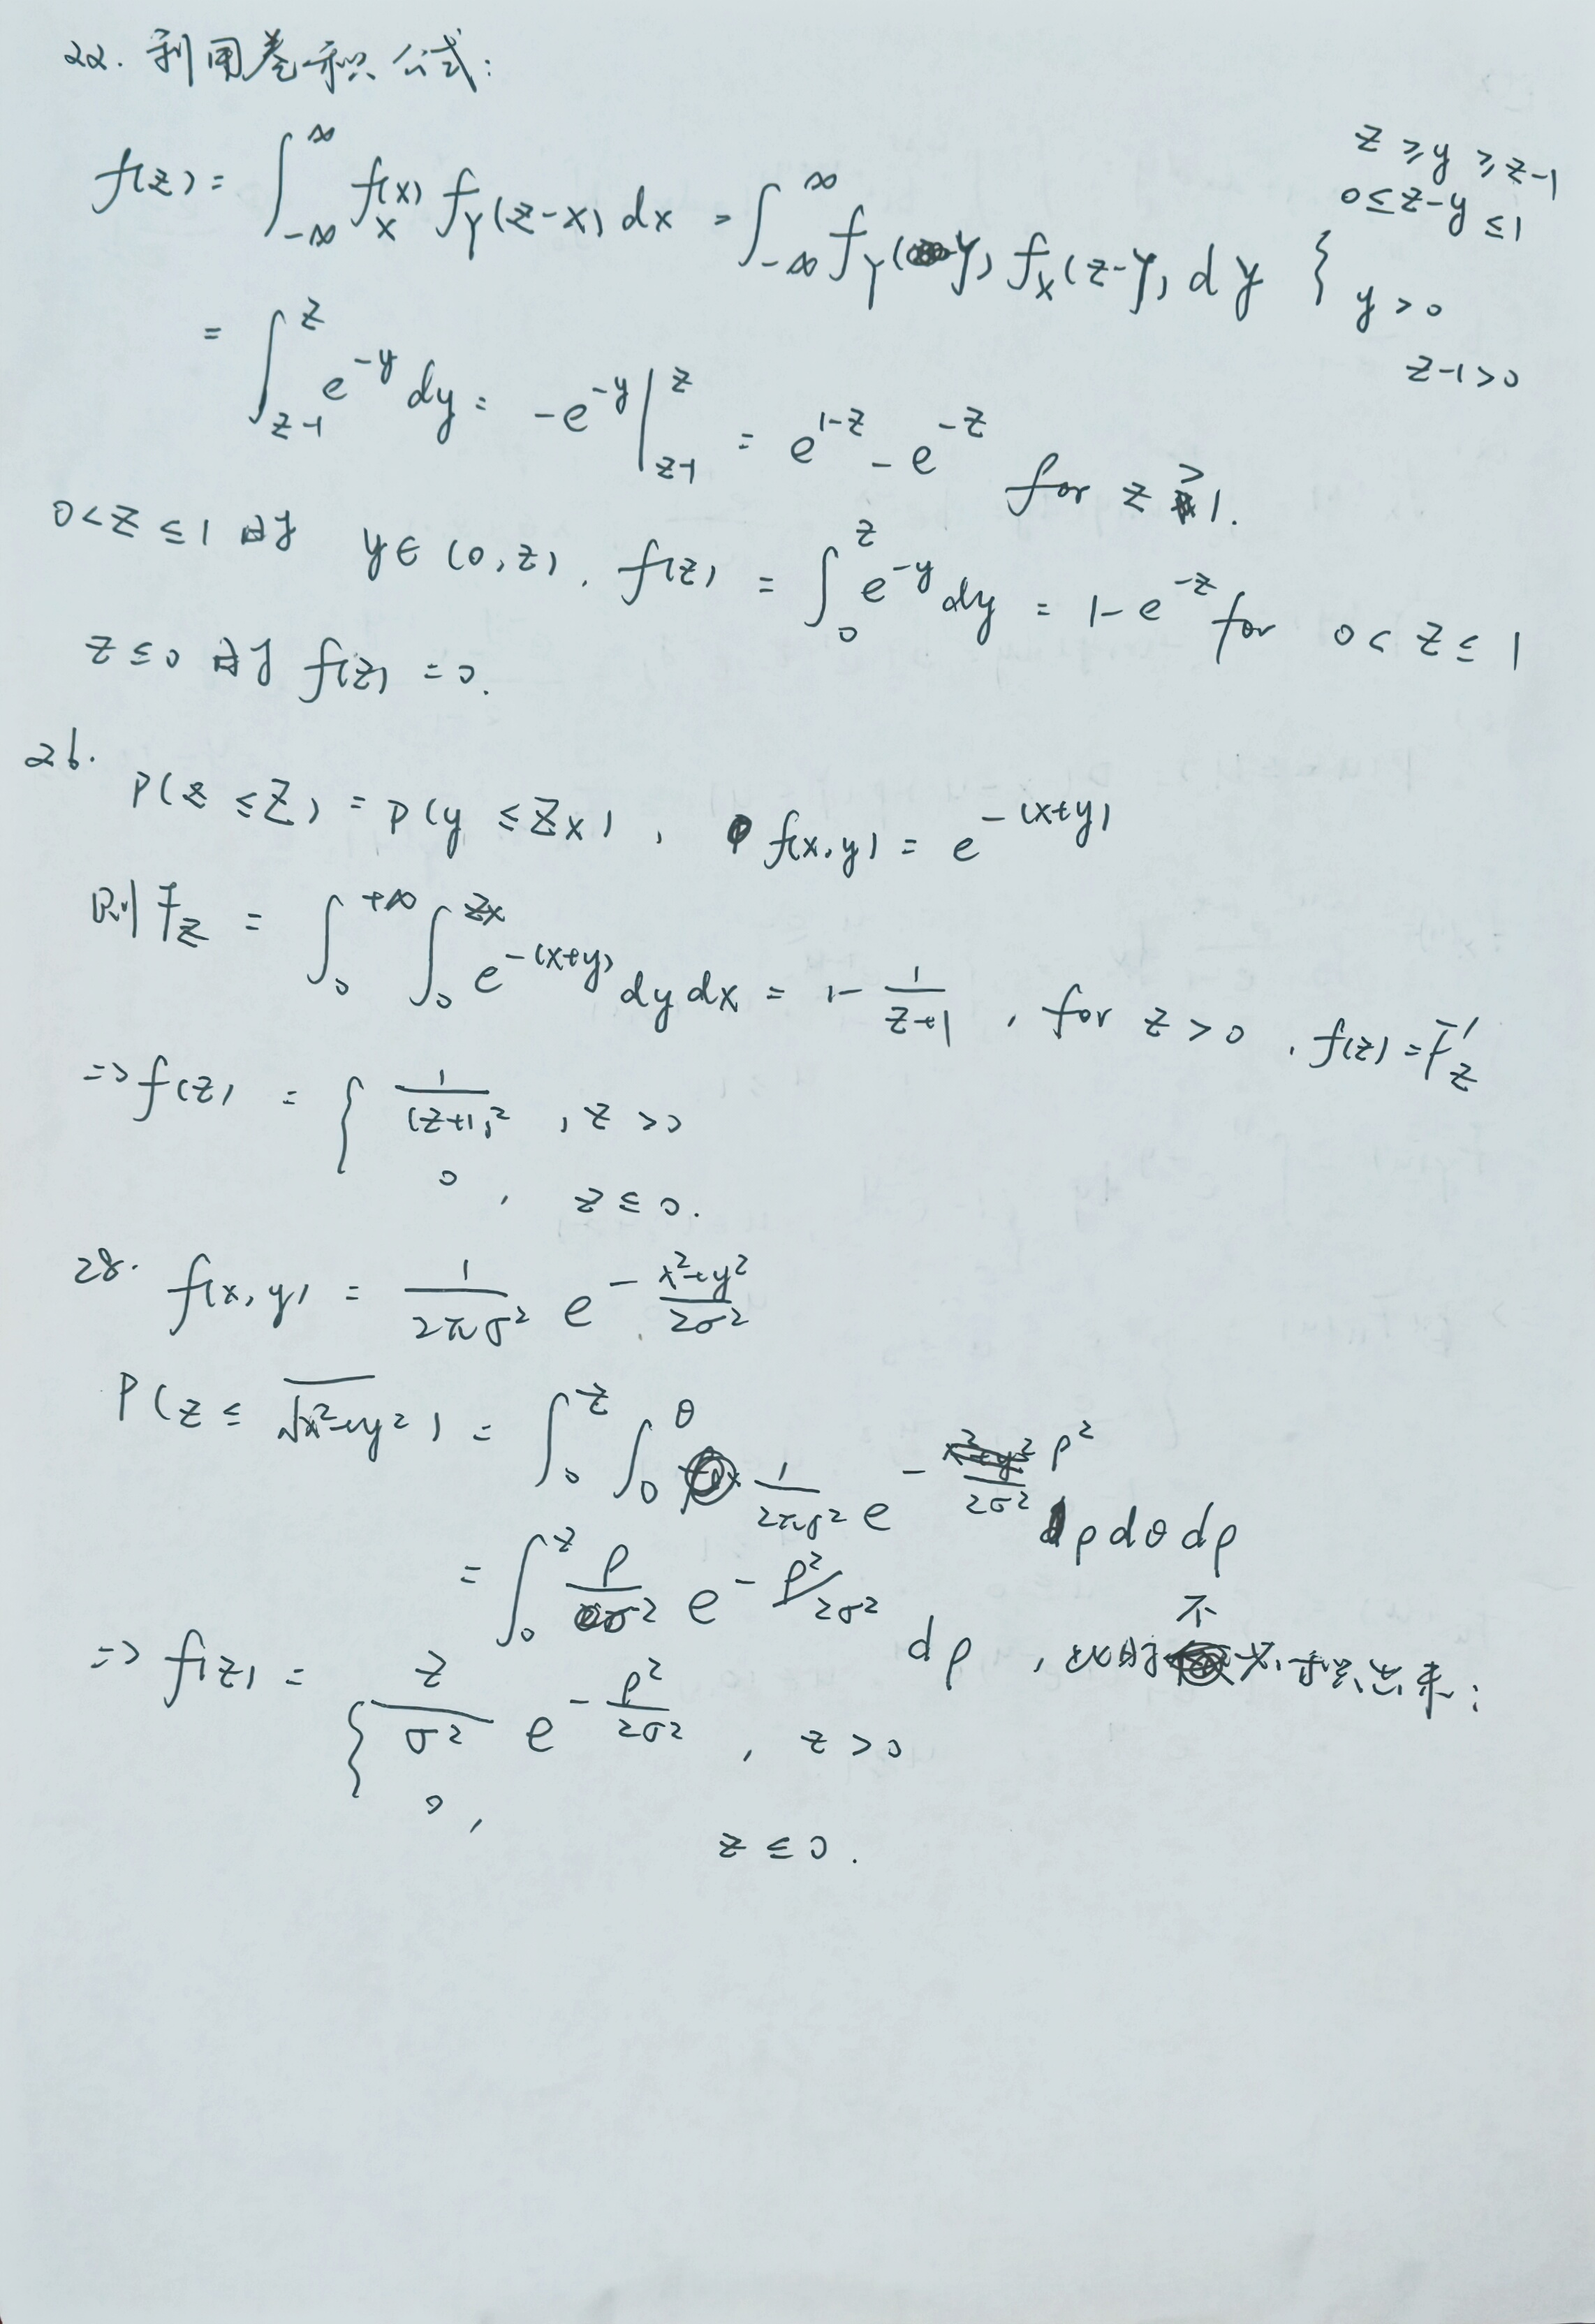 22. 利用卷积公式:
f(z) = ∫_{-∞}^{∞} f_X(x) f_Y(z-x) dx = ∫_{-∞}^{∞} f_Y(y) f_X(z-y) dy { z ≥ y ≥ z-1
0 ≤ z-y ≤ 1
y > 0
z-1 > 0
= ∫_{z-1}^{z} e^{-y} dy = -e^{-y} |_{z-1}^{z} = e^{1-z} - e^{-z} for z > 1.
0 < z ≤ 1 时 y ∈ (0, z), f(z) = ∫_0^z e^{-y} dy = 1 - e^{-z} for 0 < z ≤ 1
z ≤ 0 时 f(z) = 0.
26.
P(z ≤ Z) = P(y ≤ Zx), f(x,y) = e^{-(x+y)}
则 F_Z = ∫_0^{+∞} ∫_0^{zx} e^{-(x+y)} dy dx = 1 - \frac{1}{z+1}, for z > 0, f(z) = F'_Z
=> f(z) = { \frac{1}{(z+1)^2}, z > 0
0, z ≤ 0.
28. f(x,y) = \frac{1}{2πσ^2} e^{-\frac{x^2+y^2}{2σ^2}}
P(z ≤ \sqrt{x^2+y^2}) = ∫_0^z ∫_0^θ \frac{1}{2πσ^2} e^{-\frac{ρ^2}{2σ^2}} ρ dθ dρ
= ∫_0^z \frac{ρ}{σ^2} e^{-ρ^2/2σ^2} dρ, 不必积出来;
=> f(z) = { \frac{z}{σ^2} e^{-\frac{ρ^2}{2σ^2}}, z > 0
0, z ≤ 0.